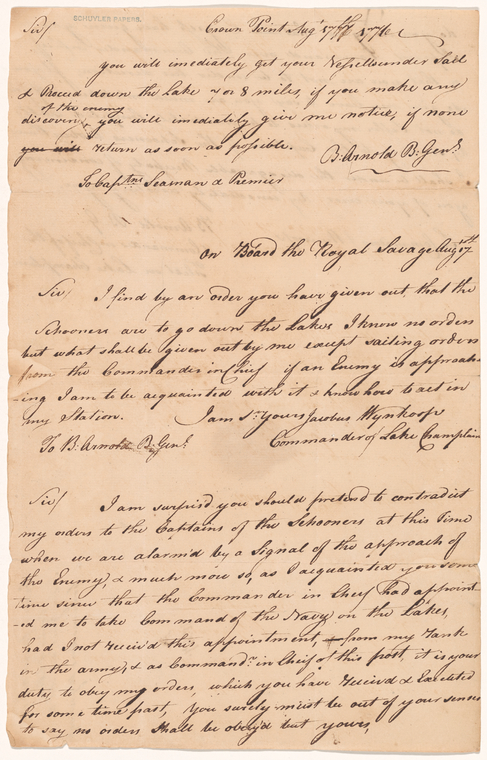 SCHUYLER PAPERS.
Sir/ Crown Point Augt 17th 1776
you will imediately get your Vessells under Sail
& Proceed down the Lake 7 or 8 miles, if you make any
of the enemy
discovery, you will imediately give me notice, if none
you will return as soon as possible.
B: Arnold B: Genl.
To Captns Seaman & Premier
On Board the Royal Savage Augt 17th
Sir/ I find by an order you have given out, that the
Schooners are to go down the Lake, I know no orders
but what shall be given out by me except sailing orders
from the Commander in Chief if an Enemy is approach
-ing I am to be acquainted with it & know how to act in
my Station. I am Sr. yours Jacobus Wynkoop
To B: Arnold B: Genl. Commander of Lake Champlain
Sir/ I am surpris'd you should pretend to contradict
my orders to the Captains of the Schooners at this Time
when we are alarm'd by a Signal of the approach of
the Enemy, & much more so, as I acquainted you some
time since that the Commander in Cheif had appoint
-ed me to take Command of the Navy on the Lakes,
had I not receiv'd this appointment, from my Rank
in the army, & as Commandr. in Cheif of this post, it is your
duty to obey my orders, which you have receiv'd & Executed
for some time past, You surely must be out of your senses
to say no orders shall be obey'd but yours,